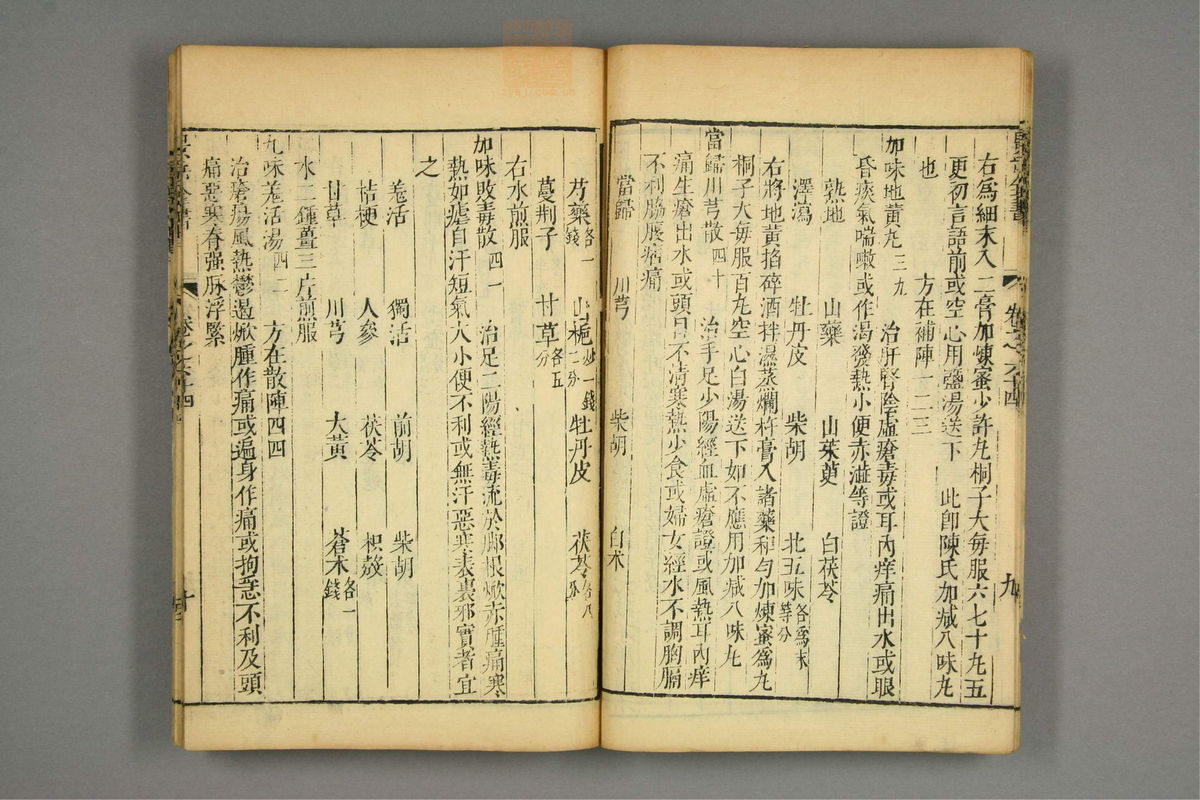 右爲細末入二膏加煉蜜少許丸桐子大每服六七十丸五
更初言語前或空心用鹽湯送下　此卽陳氏加减八味丸
也　方在補陣一二三
加味地黃丸三九　治肝腎陰虛瘡毒或耳內痒痛出水或眼
昏痰氣喘嗽或作渴發熱小便赤澁等證
熟地　山藥　山茱萸　白茯苓
澤瀉　牡丹皮　柴胡　北五味各爲末等分
右將地黃掐碎酒拌濕蒸爛杵膏入諸藥和勻加煉蜜爲丸
桐子大每服百丸空心白湯送下如不應用加减八味丸
當歸川芎散四十　治手足少陽經血虛瘡證或風熱耳內痒
痛生瘡出水或頭目不清寒熱少食或婦女經水不調胸膈
不利脇腹痞痛
當歸　川芎　柴胡　白朮
芍藥各一錢　山梔炒一錢二分　牡丹皮　茯苓各八分
蔓荆子　甘草各五分
右水煎服
加味敗毒散四一　治足三陽經熱毒流於脚根焮赤腫痛寒
熱如瘧自汗短氣大小便不利或無汗惡寒表裏邪實者宜
之
羗活　獨活　前胡　柴胡
桔梗　人參　茯苓　枳殻
甘草　川芎　大黃　蒼朮各一錢
水二鍾薑三片煎服
九味羗活湯四二　方在散陣四四
治瘡瘍風熱鬱遏焮腫作痛或遍身作痛或拘急不利及頭
痛惡寒脊强脉浮緊